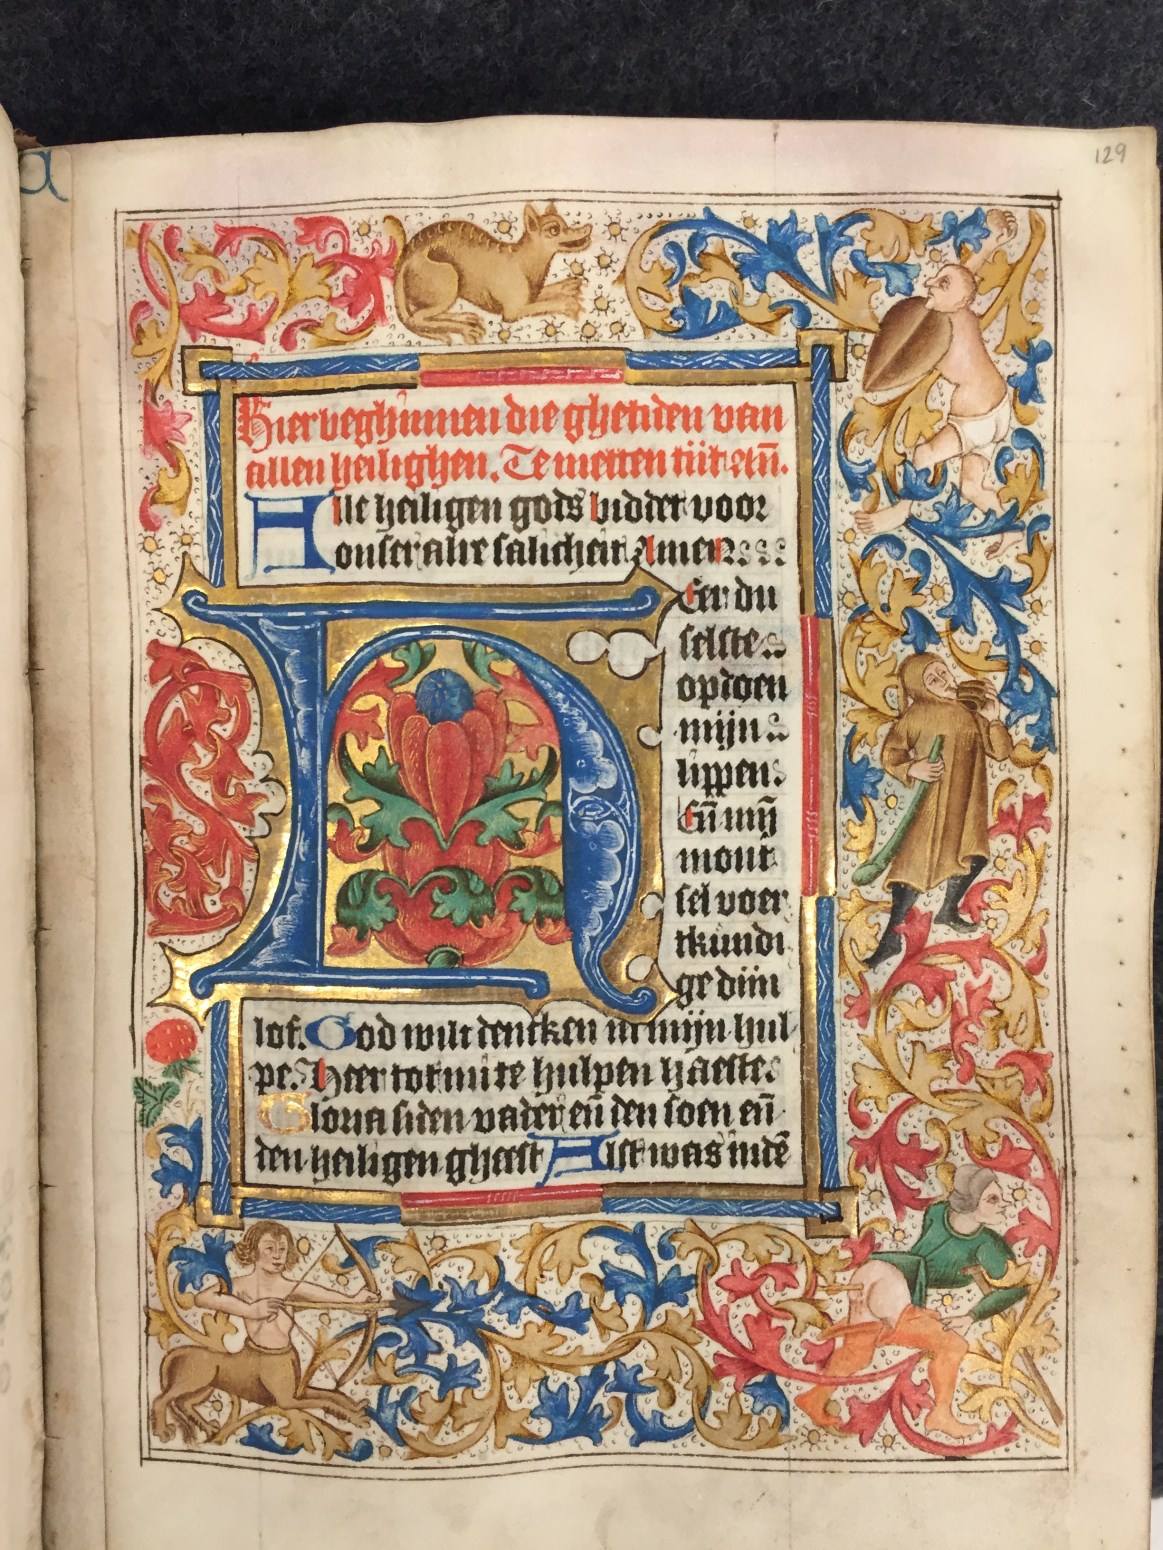 129
Hier beghinnen die ghetiden van
allen heilighen. Te metten tijt etn̄.
Alle heiligen gods biddet voor
onser alre salicheit Amen
Heer du
selste
opdoen
mijn
lippen
En̄ mij
mont
sel voer
tkundi
ge dijn
lof. God wilt dencken in mijn hul
pe. Heer tot mi te hulpen haeste.
Gloria si den vader en̄ den soen en̄
den heiligen gheest Alst was indē